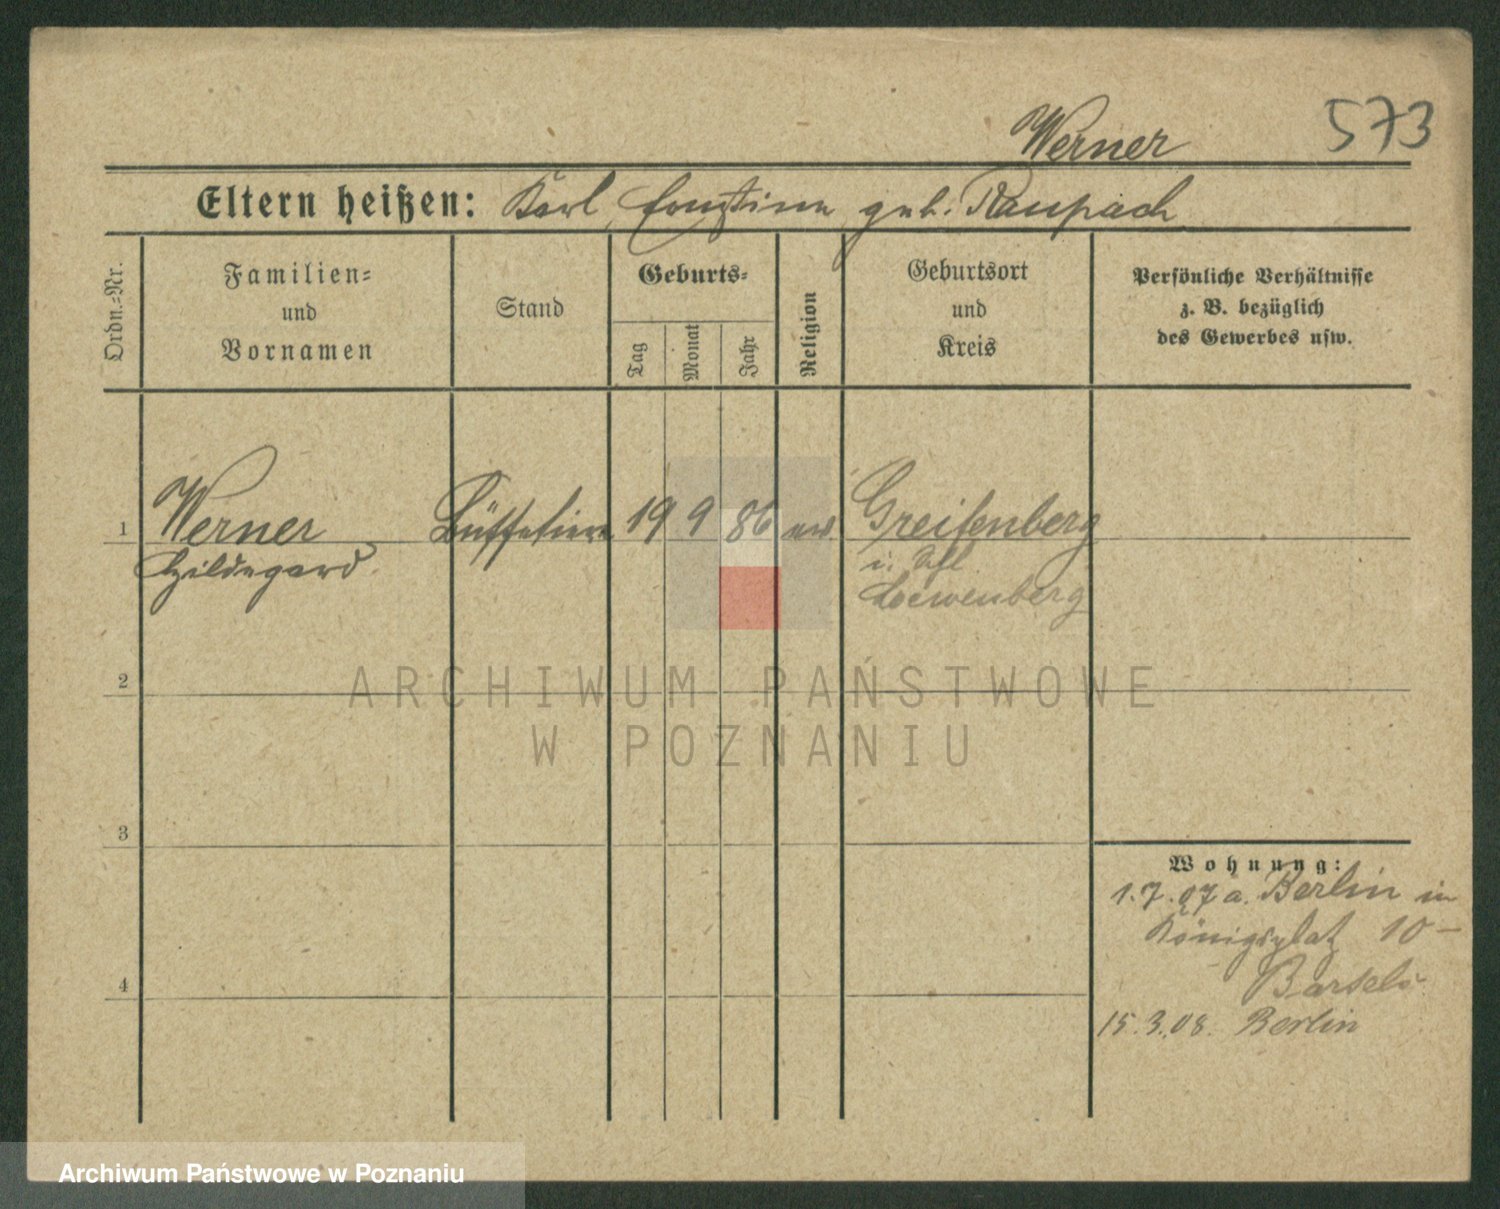 573
Werner
Eltern heißen: Karl, Ernstine geb. Raupach
Ordn.=Nr.
Familien=
und
Vornamen
Stand
Geburts=
Tag
Monat
Jahr
Religion
Geburtsort
und
Kreis
Persönliche Verhältnisse
z. B. bezüglich
des Gewerbes usw.
1 Werner Büffetiere 19 9 86 ev. Greifenberg
Hildegard i. Schl.
Löwenberg
2
ARCHIWUM PAŃSTWOWE
W POZNANIU
3
Wohnung:
1.7.07 a. Berlin in
Königsplatz 10 –
Bartels
4
15.3.08. Berlin
Archiwum Państwowe w Poznaniu